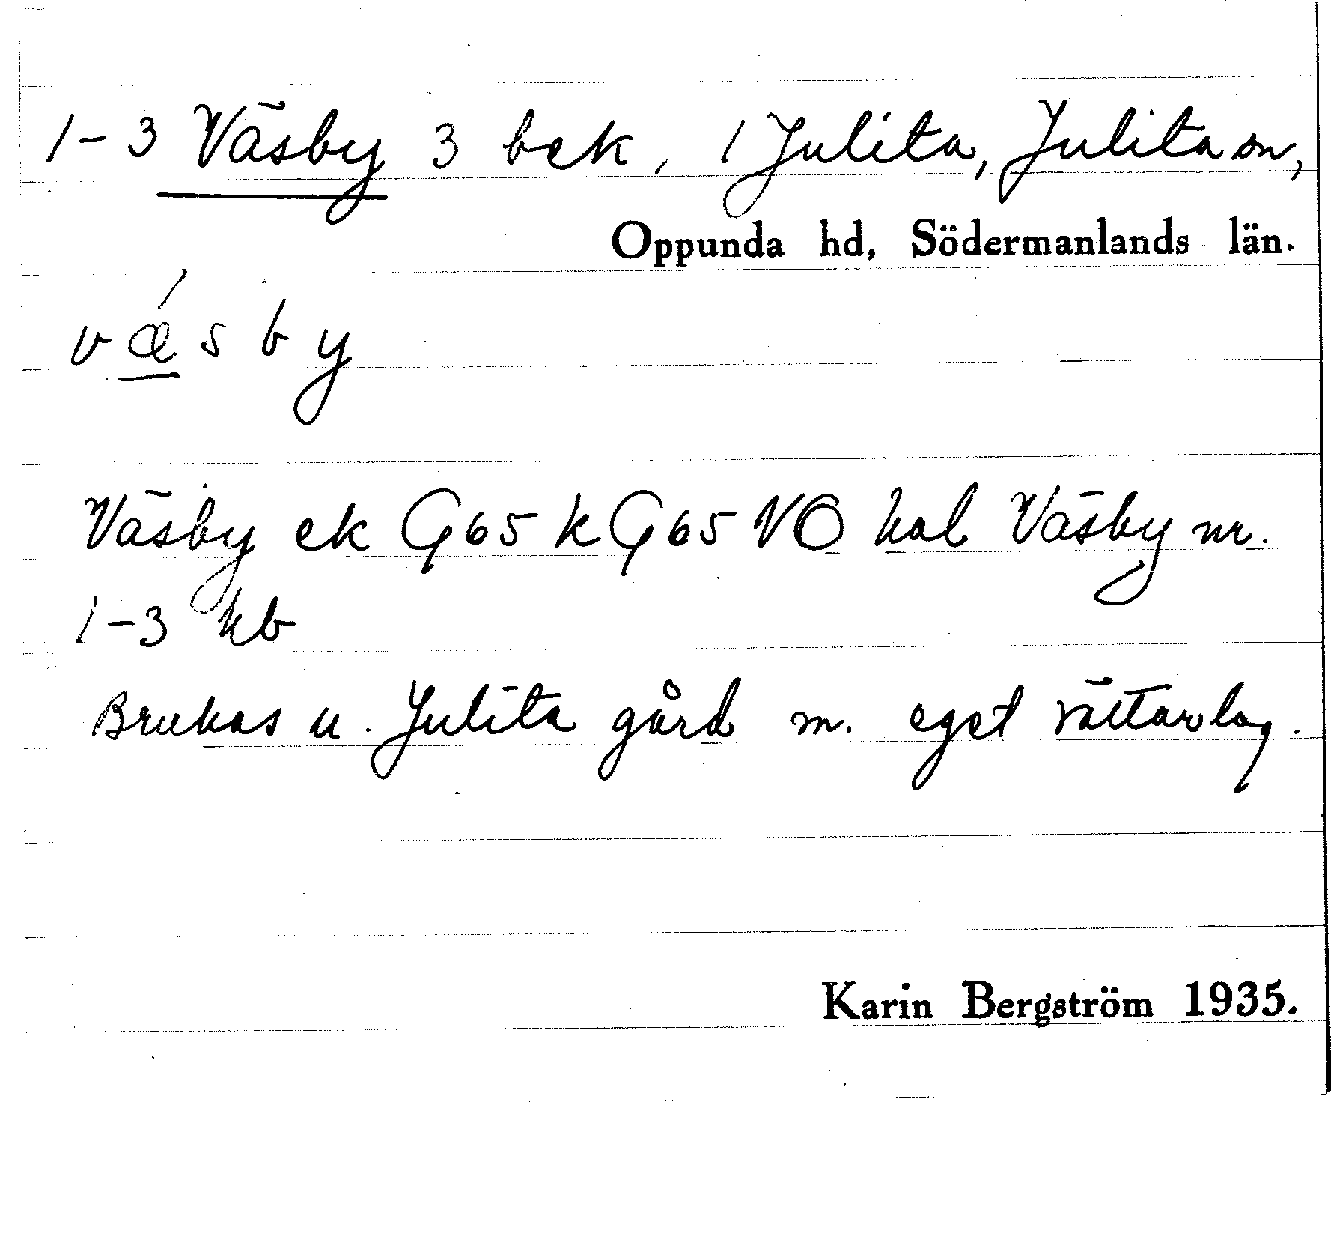 1-3 Väsby 3 bek, 1 Julita, Julita sn,
Oppunda hd, Södermanlands län.
vǽsby
Väsby ek G65 k G65 NO hal Väsby nr.
1-3 kb
Brukas u. Julita gård m. eget rättarlag.
Karin Bergström 1935.